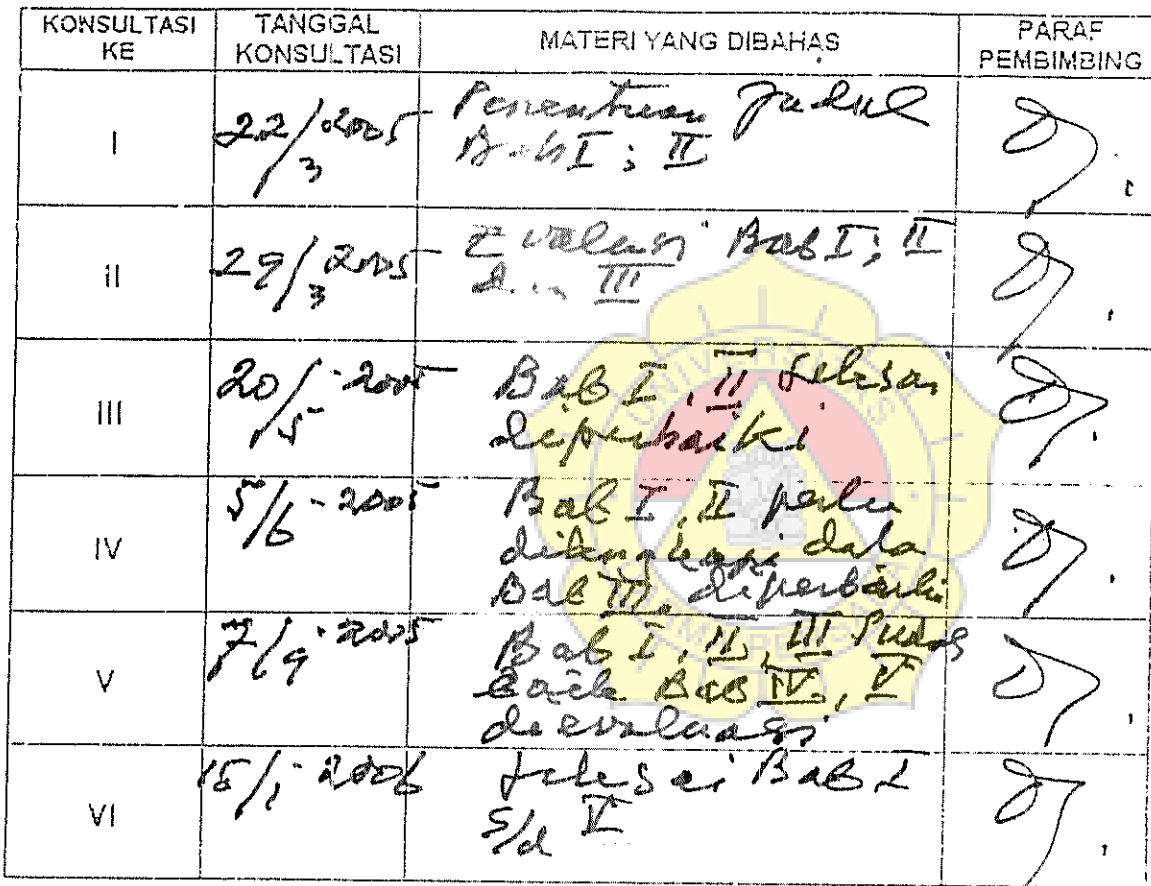 KONSULTASI KE
TANGGAL KONSULTASI
MATERI YANG DIBAHAS
PARAF PEMBIMBING
I
22/3 2005
Penentuan Judul
Bab I ; II
II
29/3 2005
Evaluasi Bab I ; II
dan III
III
20/5 - 2005
Bab I , II selesai
diperbaiki
IV
5/6 - 2005
Bab I , II perlu
dilengkapi data
Bab III diperbaiki
V
7/9 - 2005
Bab I , II , III sudah
baik Bab IV , V
dievaluasi
VI
15/1 - 2006
selesai Bab I
s/d V
UNIVERSITAS